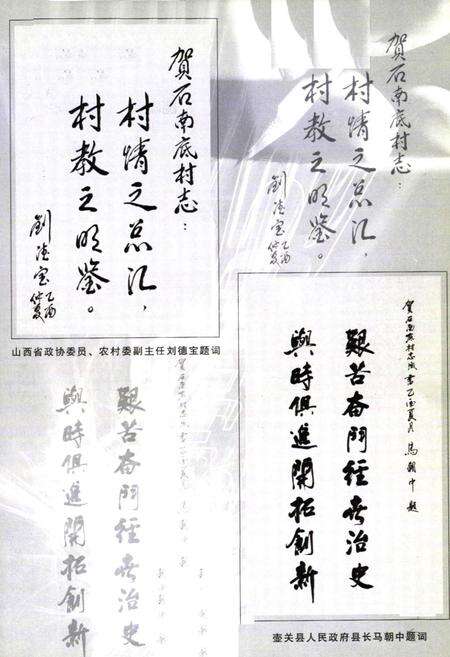 賀石南底村志:
村情之总汇,
村教之明鉴。
劉德宝
乙酉
仲夏
山西省政协委员、农村委副主任刘德宝题词
賀石南底村志
村情之总汇,
村教之明鉴。
劉德宝
乙酉
仲夏
賀石南底村志成書乙酉夏月 馬朝中題
艱苦奋鬥經冬治史
與時俱進開拓創新
壶关县人民政府县长马朝中题词
艱苦奋鬥
治史
與時俱進開拓創新